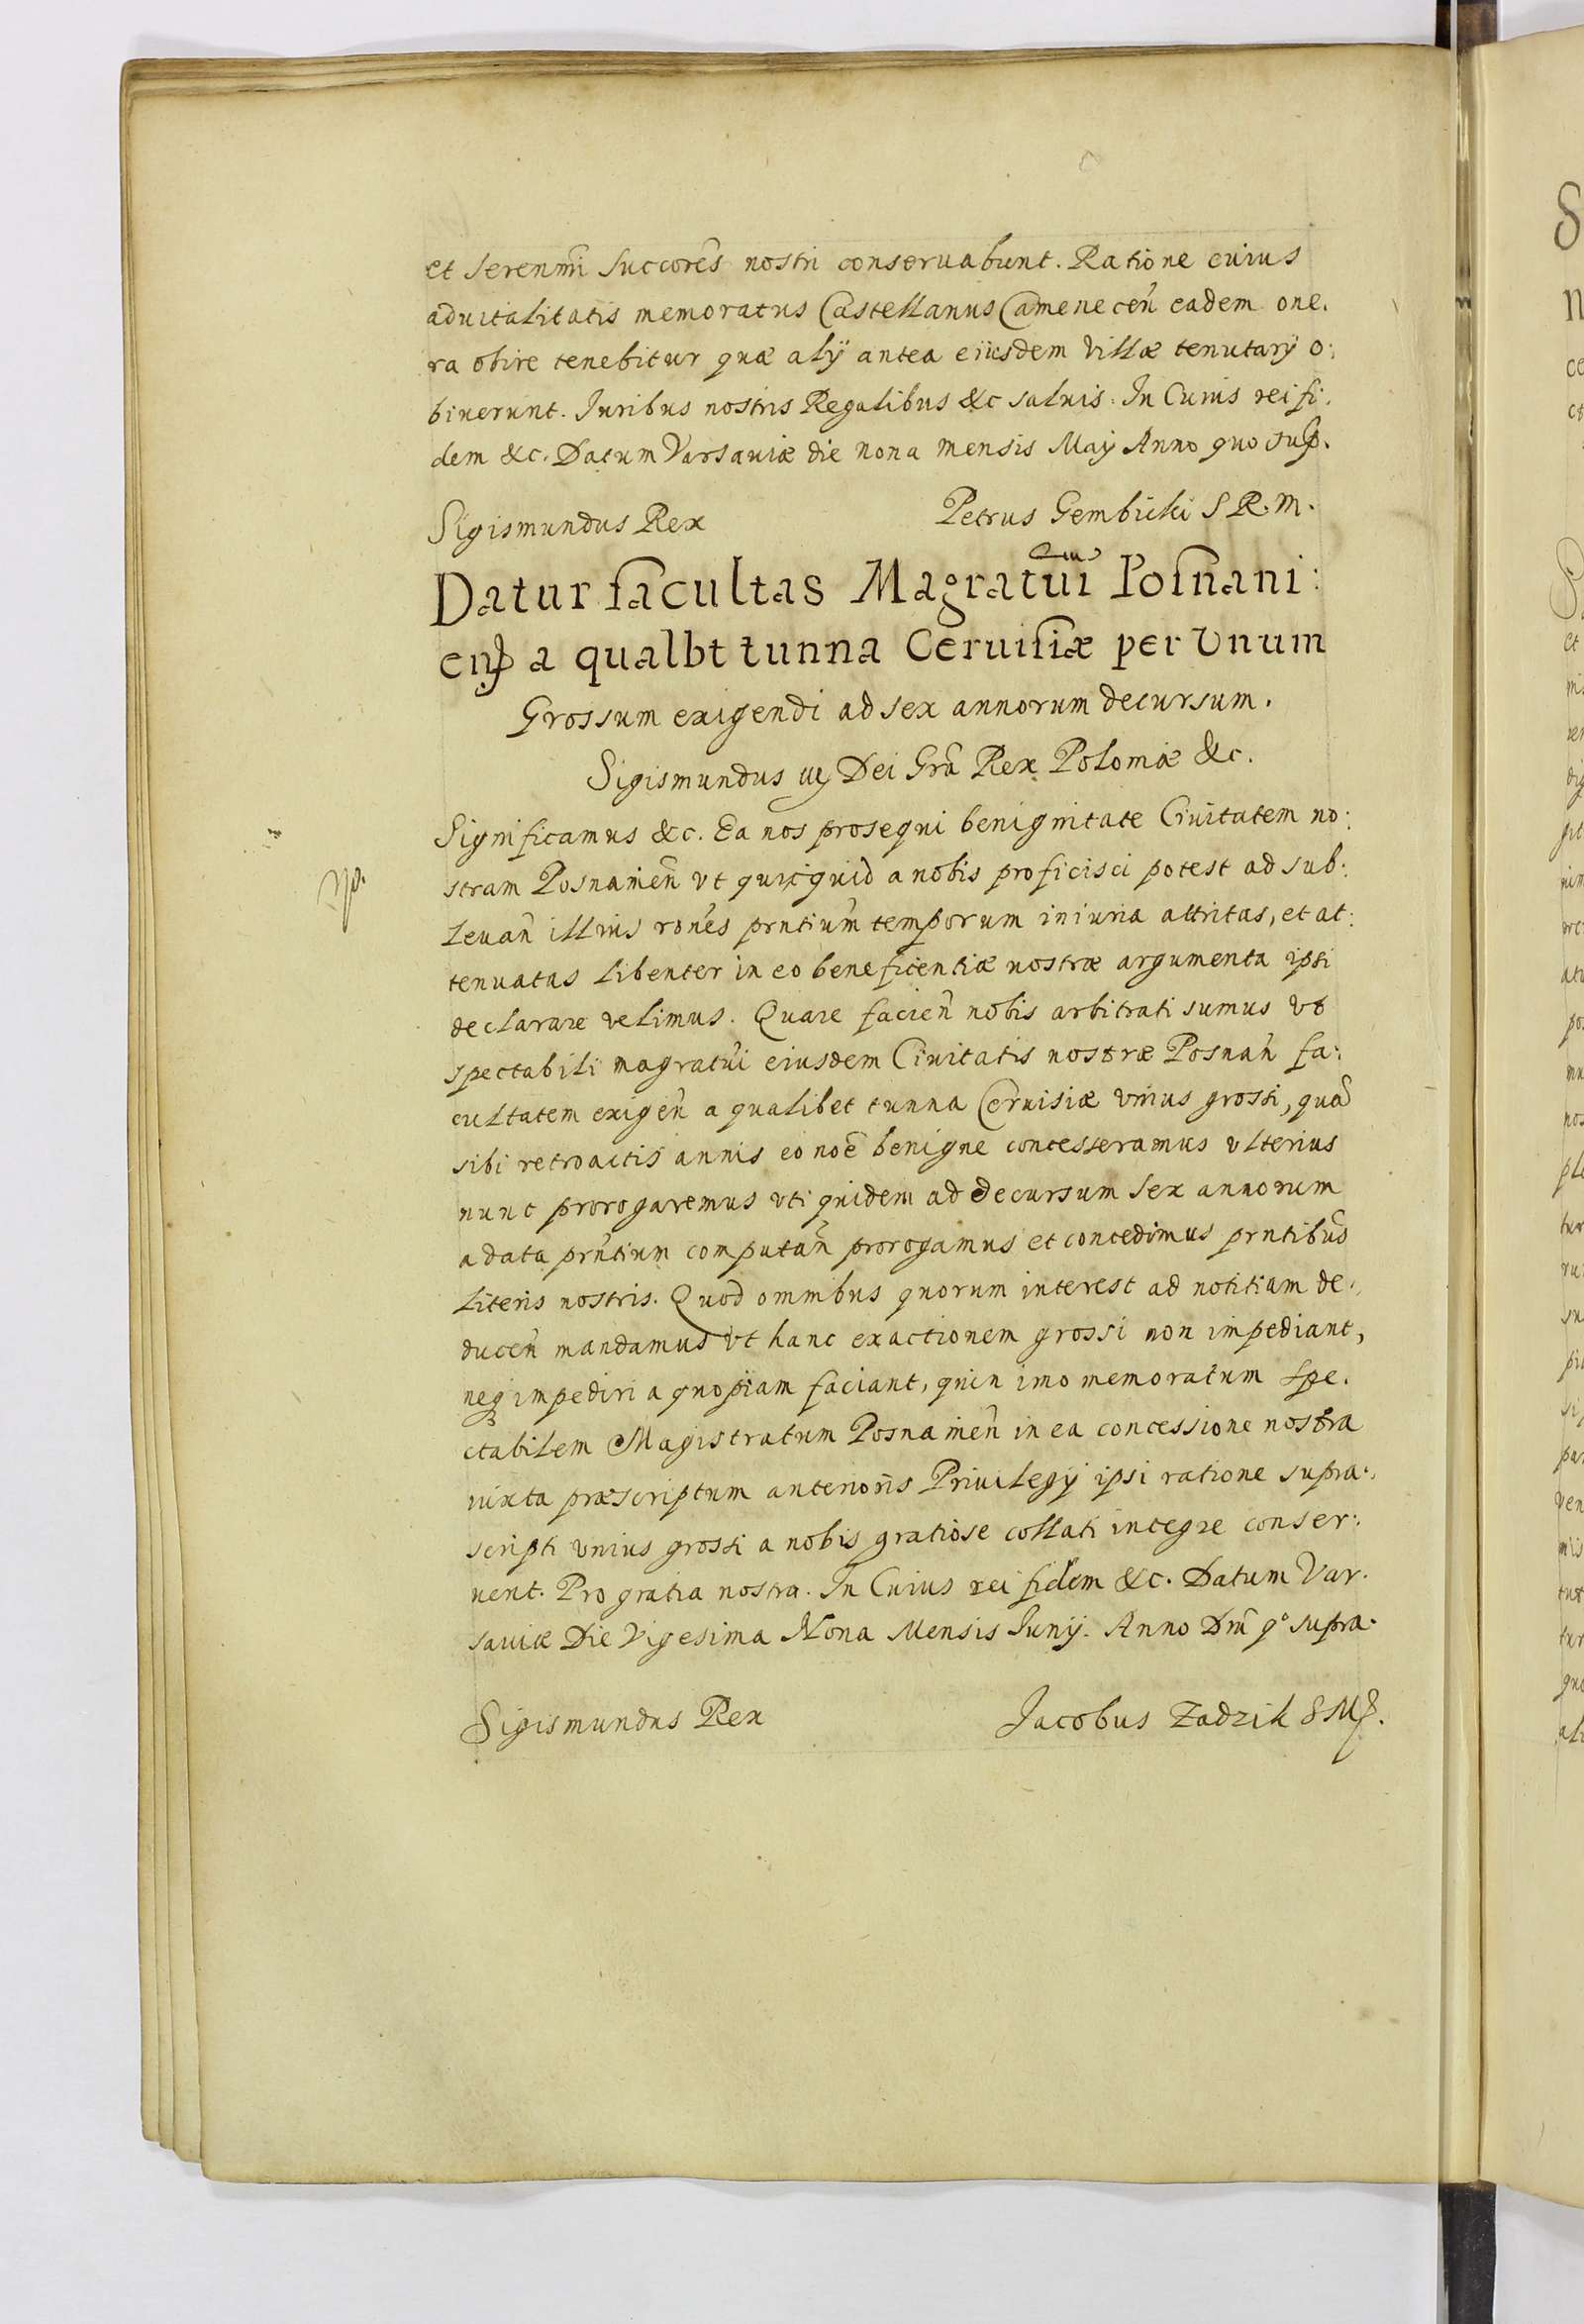 et Serenmi Succores nostri conseruabunt. Ratione cuius
aduitalitatis memoratus Castellanus Camenecen eadem one.
ra obire tenebitur quæ alij antea eiusdem Villæ tenutarij o:
biuerunt. Juribus nostris Regalibus &c saluis. In Cuius rei fi.
dem &c. Datum Varsauiæ die nona mensis Maij Anno quo sup.
Sigismundus Rex Petrus Gembicki S R. M.
Datur facultas Magratui Posnani:
ens a qualbt tunna Ceruisiæ per Unum
Grossum exigendi ad sex annorum decursum.
Sigismundus iij Dei Gra Rex Poloniæ &c.
Significamus &c. Ea nos prosequi benignitate Ciuitatem no:
stram Posnanien vt quicquid a nobis proficisci potest ad sub:
leuan illius rones prntium temporum iniuria attritas, et at:
tenuatas libenter in eo beneficentiæ nostræ argumenta ipsi
declarare velimus. Quare facien nobis arbitrati sumus vt
spectabili magratui eiusdem Ciuitatis nostræ Posnan fa:
cultatem exigen a qualibet tunna Ceruisiæ vnius grossi, qua
sibi retroactis annis eo noe benigne concesseramus vlterius
nunc prorogaremus vti quidem ad decursum Sex annorum
a data prntium computan prorogamus et concedimus prntibus
literis nostris. Quod omnibus quorum interest ad notitiam de.
ducen mandamus vt hanc exactionem grossi non impediant,
neq impediri a quopiam faciant, quin imo memoratum Spe.
ctabilem Magistratum Posnanien in ea concessione nostra
iuxta præscriptum anterioris Priuilegij ipsi ratione supra.
scripti vnius grossi a nobis gratiose collati integre conser:
uent. Pro gratia nostra. In Cuius rei fidem &c. Datum Var.
sauiæ Die Vigesima Nona Mensis Junij. Anno Dni qo supra.
Sigismundus Rex Jacobus Zadzik